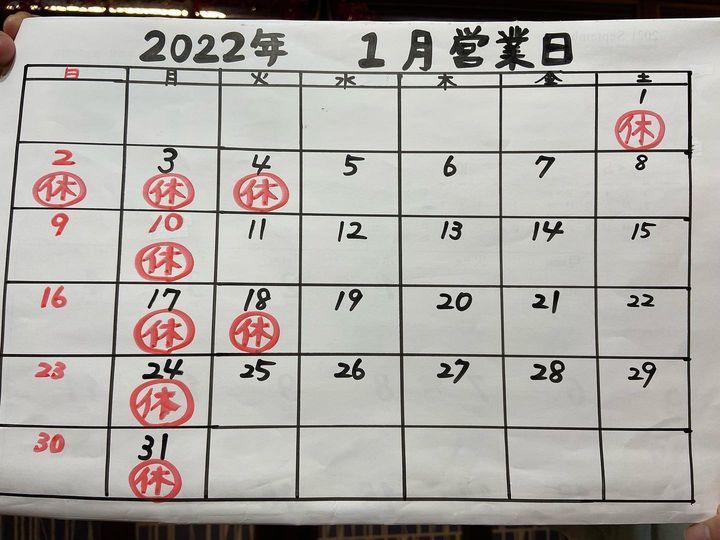 2022年 1月営業日
日 月 火 水 木 金 土
1
休
2 3 4 5 6 7 8
休 休 休
9 10 11 12 13 14 15
休
16 17 18 19 20 21 22
休 休
23 24 25 26 27 28 29
休
30 31
休